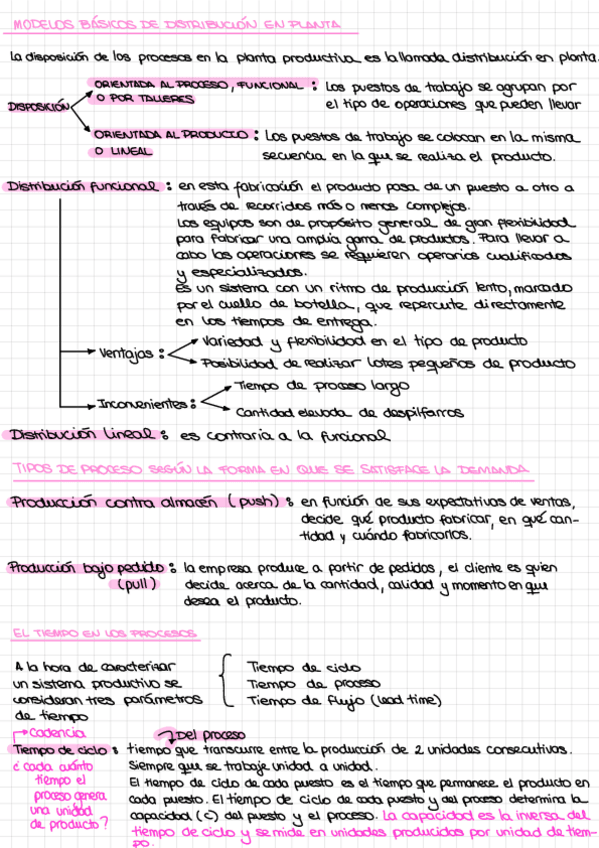 MODELOS BÁSICOS DE DISTRIBUCIÓN EN PLANTA
La disposición de los procesos en la planta productiva es la llamada distribución en planta.
DISPOSICIÓN
ORIENTADA AL PROCESO, FUNCIONAL : Los puestos de trabajo se agrupan por
O POR TALLERES el tipo de operaciones que pueden llevar
ORIENTADA AL PRODUCTO : Los puestos de trabajo se colocan en la misma
O LINEAL secuencia en la que se realiza el producto.
Distribución funcional : en esta fabricación el producto pasa de un puesto a otro a
través de recorridos más o menos complejos.
Los equipos son de propósito general de gran flexibilidad
para fabricar una amplia gama de productos. Para llevar a
cabo las operaciones se requieren operarios cualificados
y especializados.
Es un sistema con un ritmo de producción lento, marcado
por el cuello de botella, que repercute directamente
en los tiempos de entrega.
Ventajas :
Variedad y flexibilidad en el tipo de producto
Posibilidad de realizar lotes pequeños de producto
Inconvenientes :
Tiempo de proceso largo
Cantidad elevada de despilfarros
Distribución lineal : es contraria a la funcional
TIPOS DE PROCESO SEGÚN LA FORMA EN QUE SE SATISFACE LA DEMANDA
Producción contra almacén (push) : en función de sus expectativas de ventas,
decide qué producto fabricar, en qué can-
tidad y cuándo fabricarlos.
Producción bajo pedido : la empresa produce a partir de pedidos, el cliente es quien
(pull) decide acerca de la cantidad, calidad y momento en que
desea el producto.
EL TIEMPO EN LOS PROCESOS
A la hora de caracterizar
un sistema productivo se
consideran tres parámetros
de tiempo
Tiempo de ciclo
Tiempo de proceso
Tiempo de flujo (lead time)
Cadencia
Del proceso
Tiempo de ciclo : tiempo que transcurre entre la producción de 2 unidades consecutivas.
Siempre que se trabaje unidad a unidad.
¿ cada cuánto
tiempo el
proceso genera
una unidad
de producto?
El tiempo de ciclo de cada puesto es el tiempo que permanece el producto en
cada puesto. El tiempo de ciclo de cada puesto y del proceso determina la
capacidad (c) del puesto y el proceso. La capacidad es la inversa del
tiempo de ciclo y se mide en unidades producidas por unidad de tiem-
po.